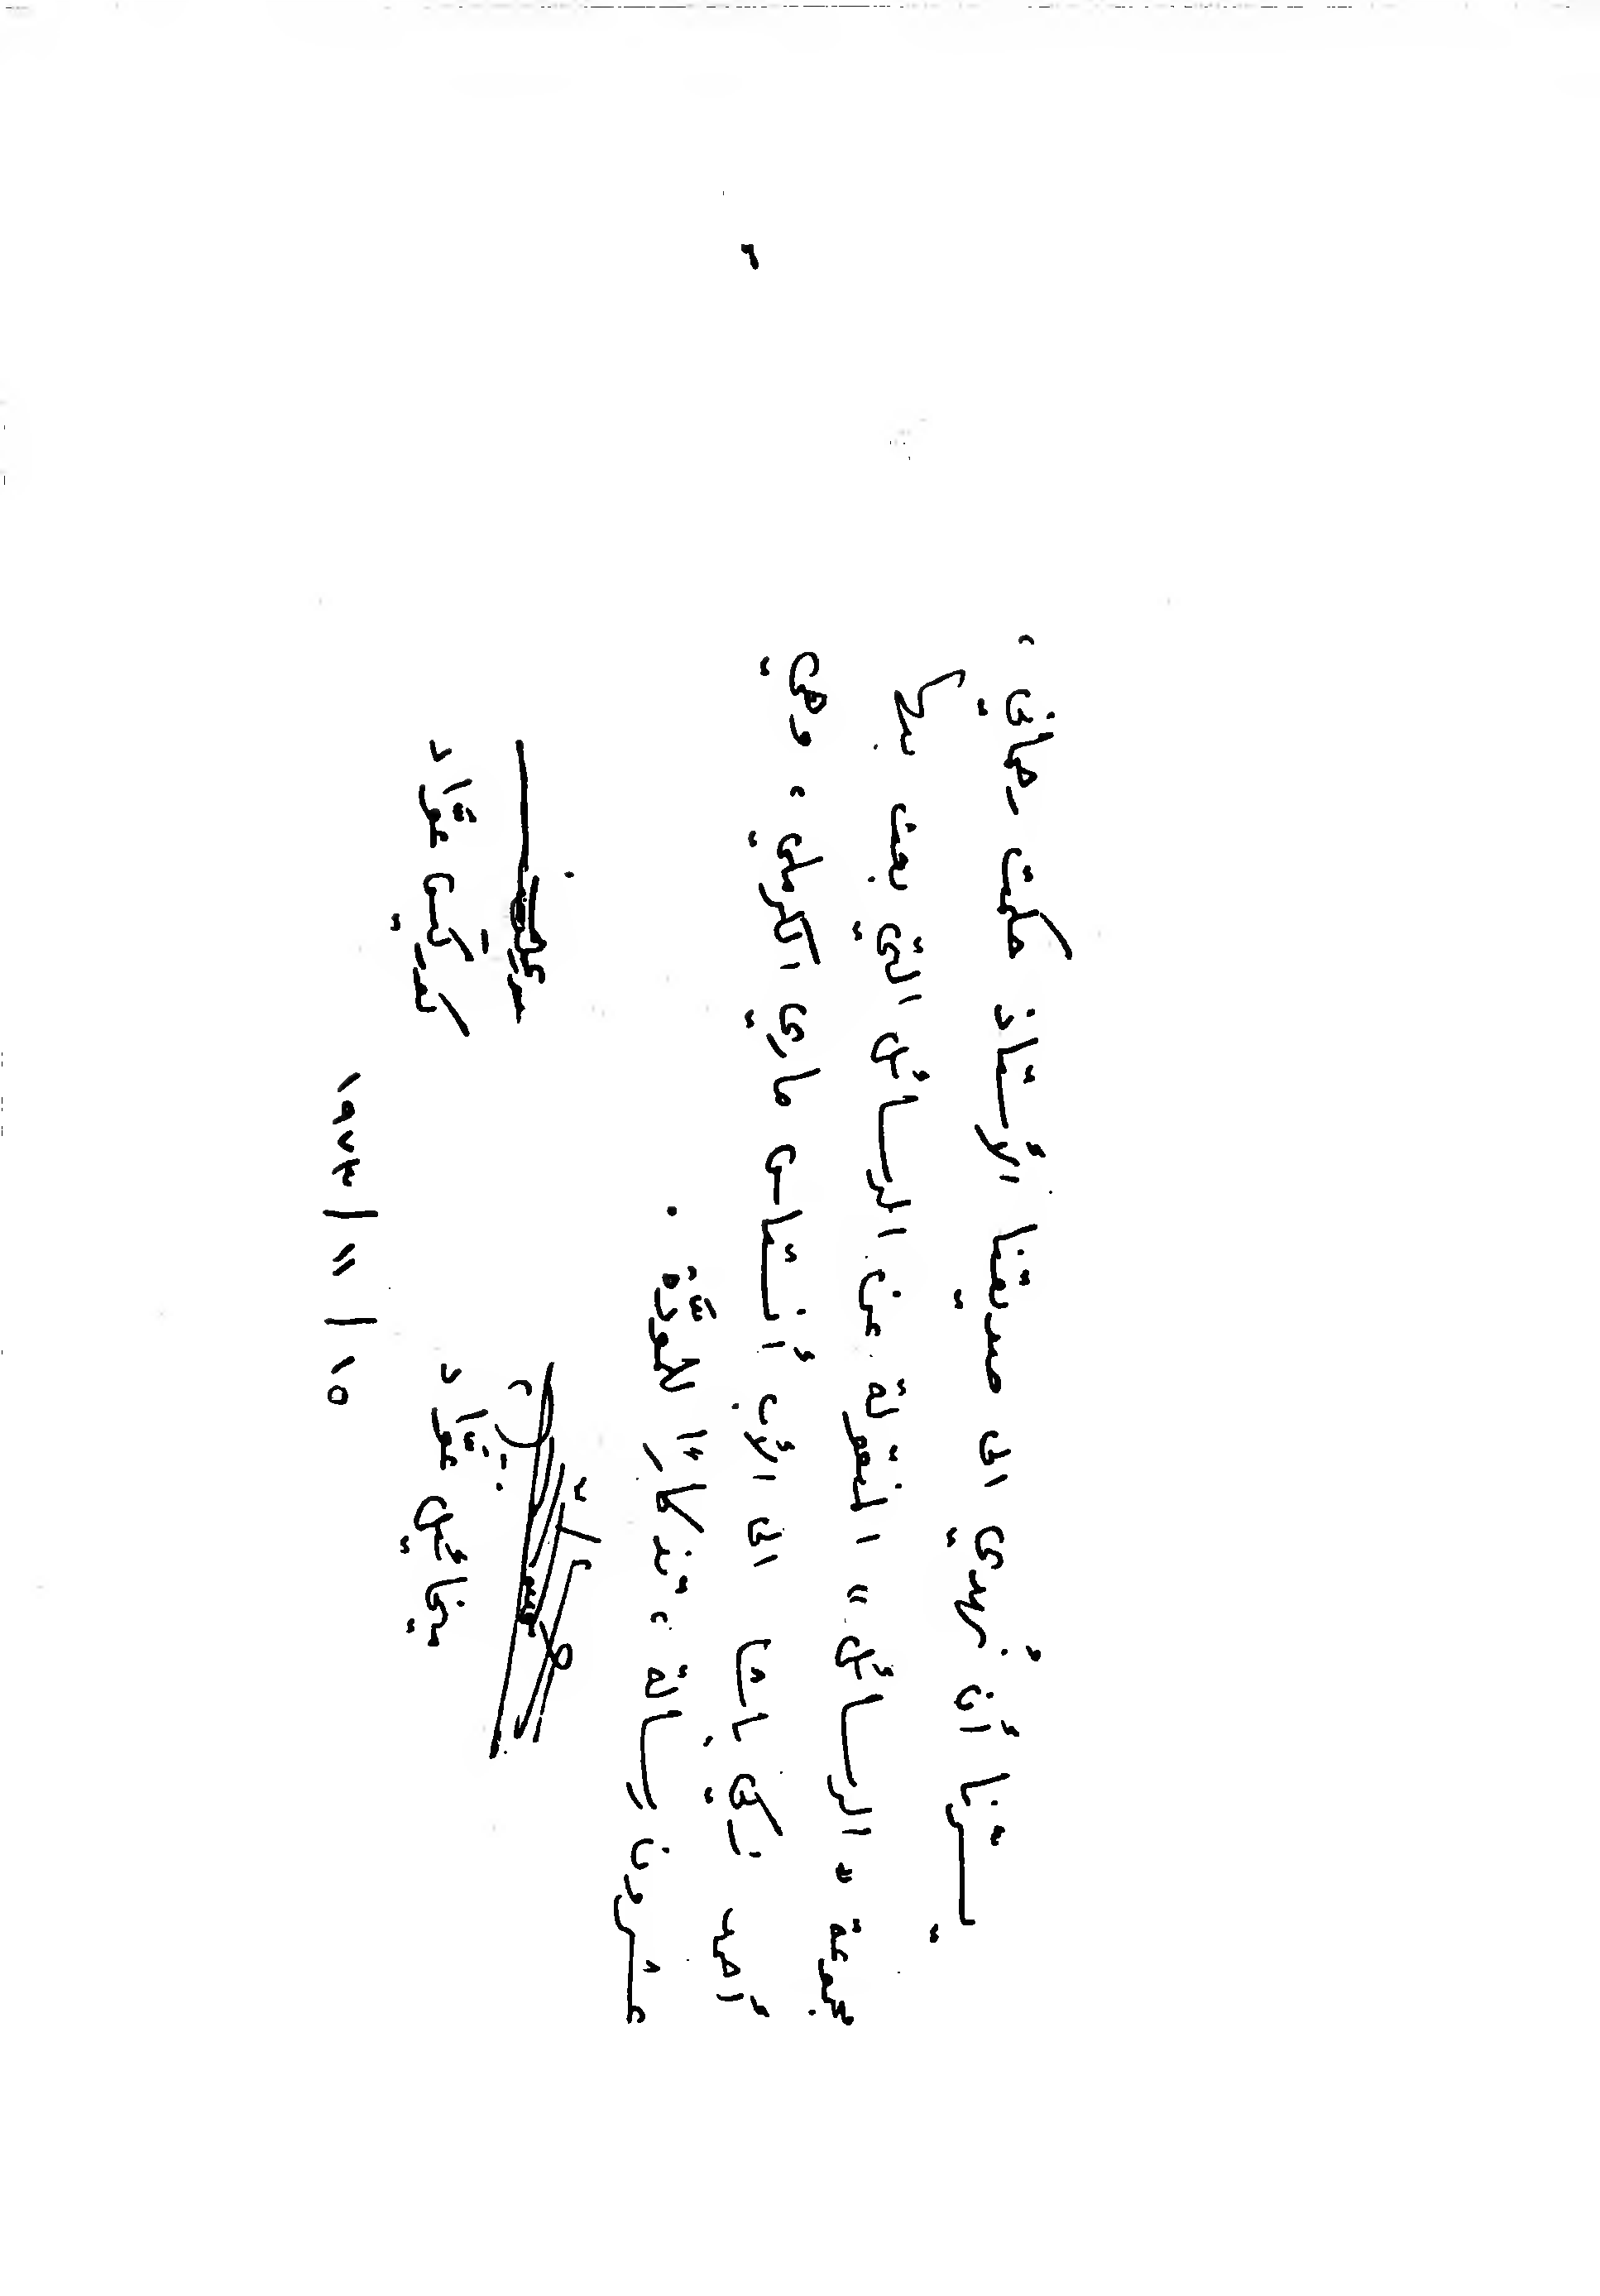 يسرنا أن نُهدي الى صديقنا الأستاذ حكمت رحماني،
مجموعة « الرسائل » المنقولة عن الرسائل التي بعث بها
أحمد زكي باشا الى الأب أنستاس ماري الكرملي، وهي
عشرون رسالة، تذكاراً للمودّة.
ميخائيل عوّاد
كوركيس عوّاد
١٥ / ١١ / ١٩٧٣